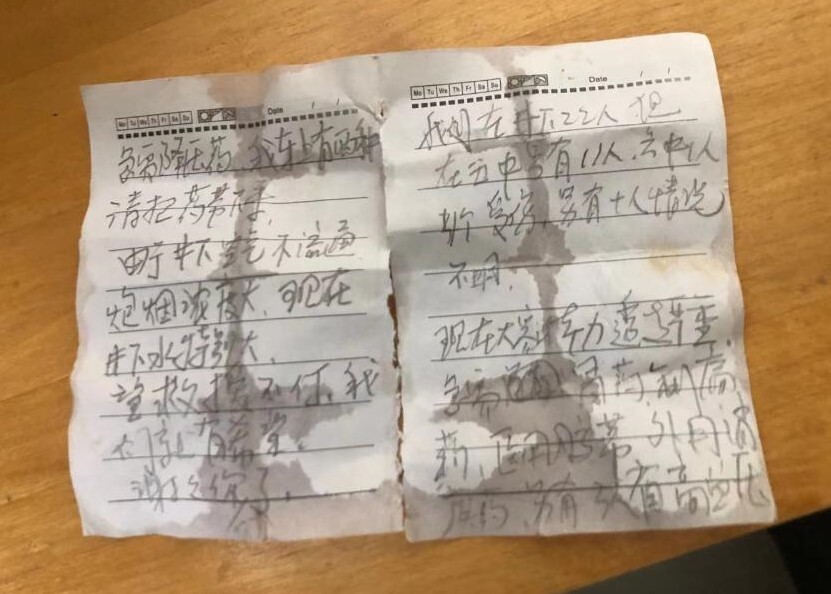 Mo Tu We Th Fr Sa Su Date
我们在井下22人 但
在五中段有11人.六中1人
受伤.另有十人情况
不明.
现在大家体力透支严重.
急需 胃药,止痛
药,医用胶带,外用消
炎药,另有 人有高血压
Mo Tu We Th Fr Sa Su Date
急需降压药.我车上有两种
请把药带下来.
由于井下空气不流通
炮烟浓度大,现在
井下水特别大,
望救援不停,我
们就有希望.
谢谢您了.